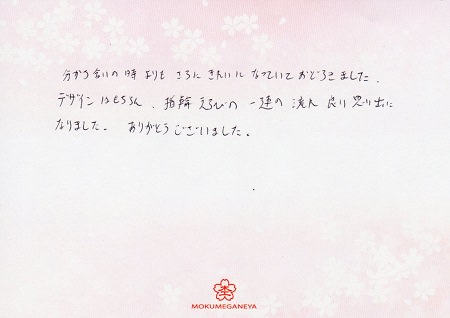 分かち合いの時よりも さらに きれいに なっていて おどろきました。
デザインはもちろん、指輪えらびの 一連の 流れ 良い思い出に
なりました。 ありがとうございました。
MOKUMEGANEYA